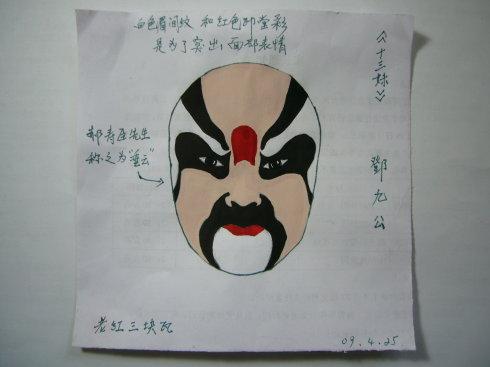 白色眉间纹 和红色印堂彩
是为了突出面部表情
《十三妹》
郝寿臣先生
称之为"垂云"
鄧九公
老红三块瓦
09.4.25